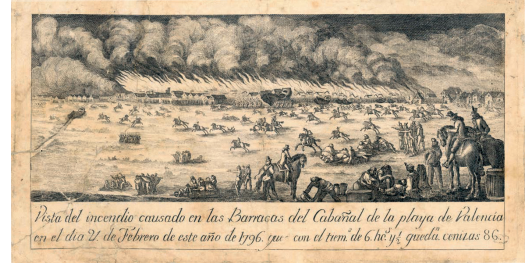 Vista del incendio causado en las Barracas del Cabañal de la playa de Valencia
en el dia 21 de Febrero de este año de 1796. que con el term.º de 6. hõ.ˢ y ½ quedã. cenizas 86.